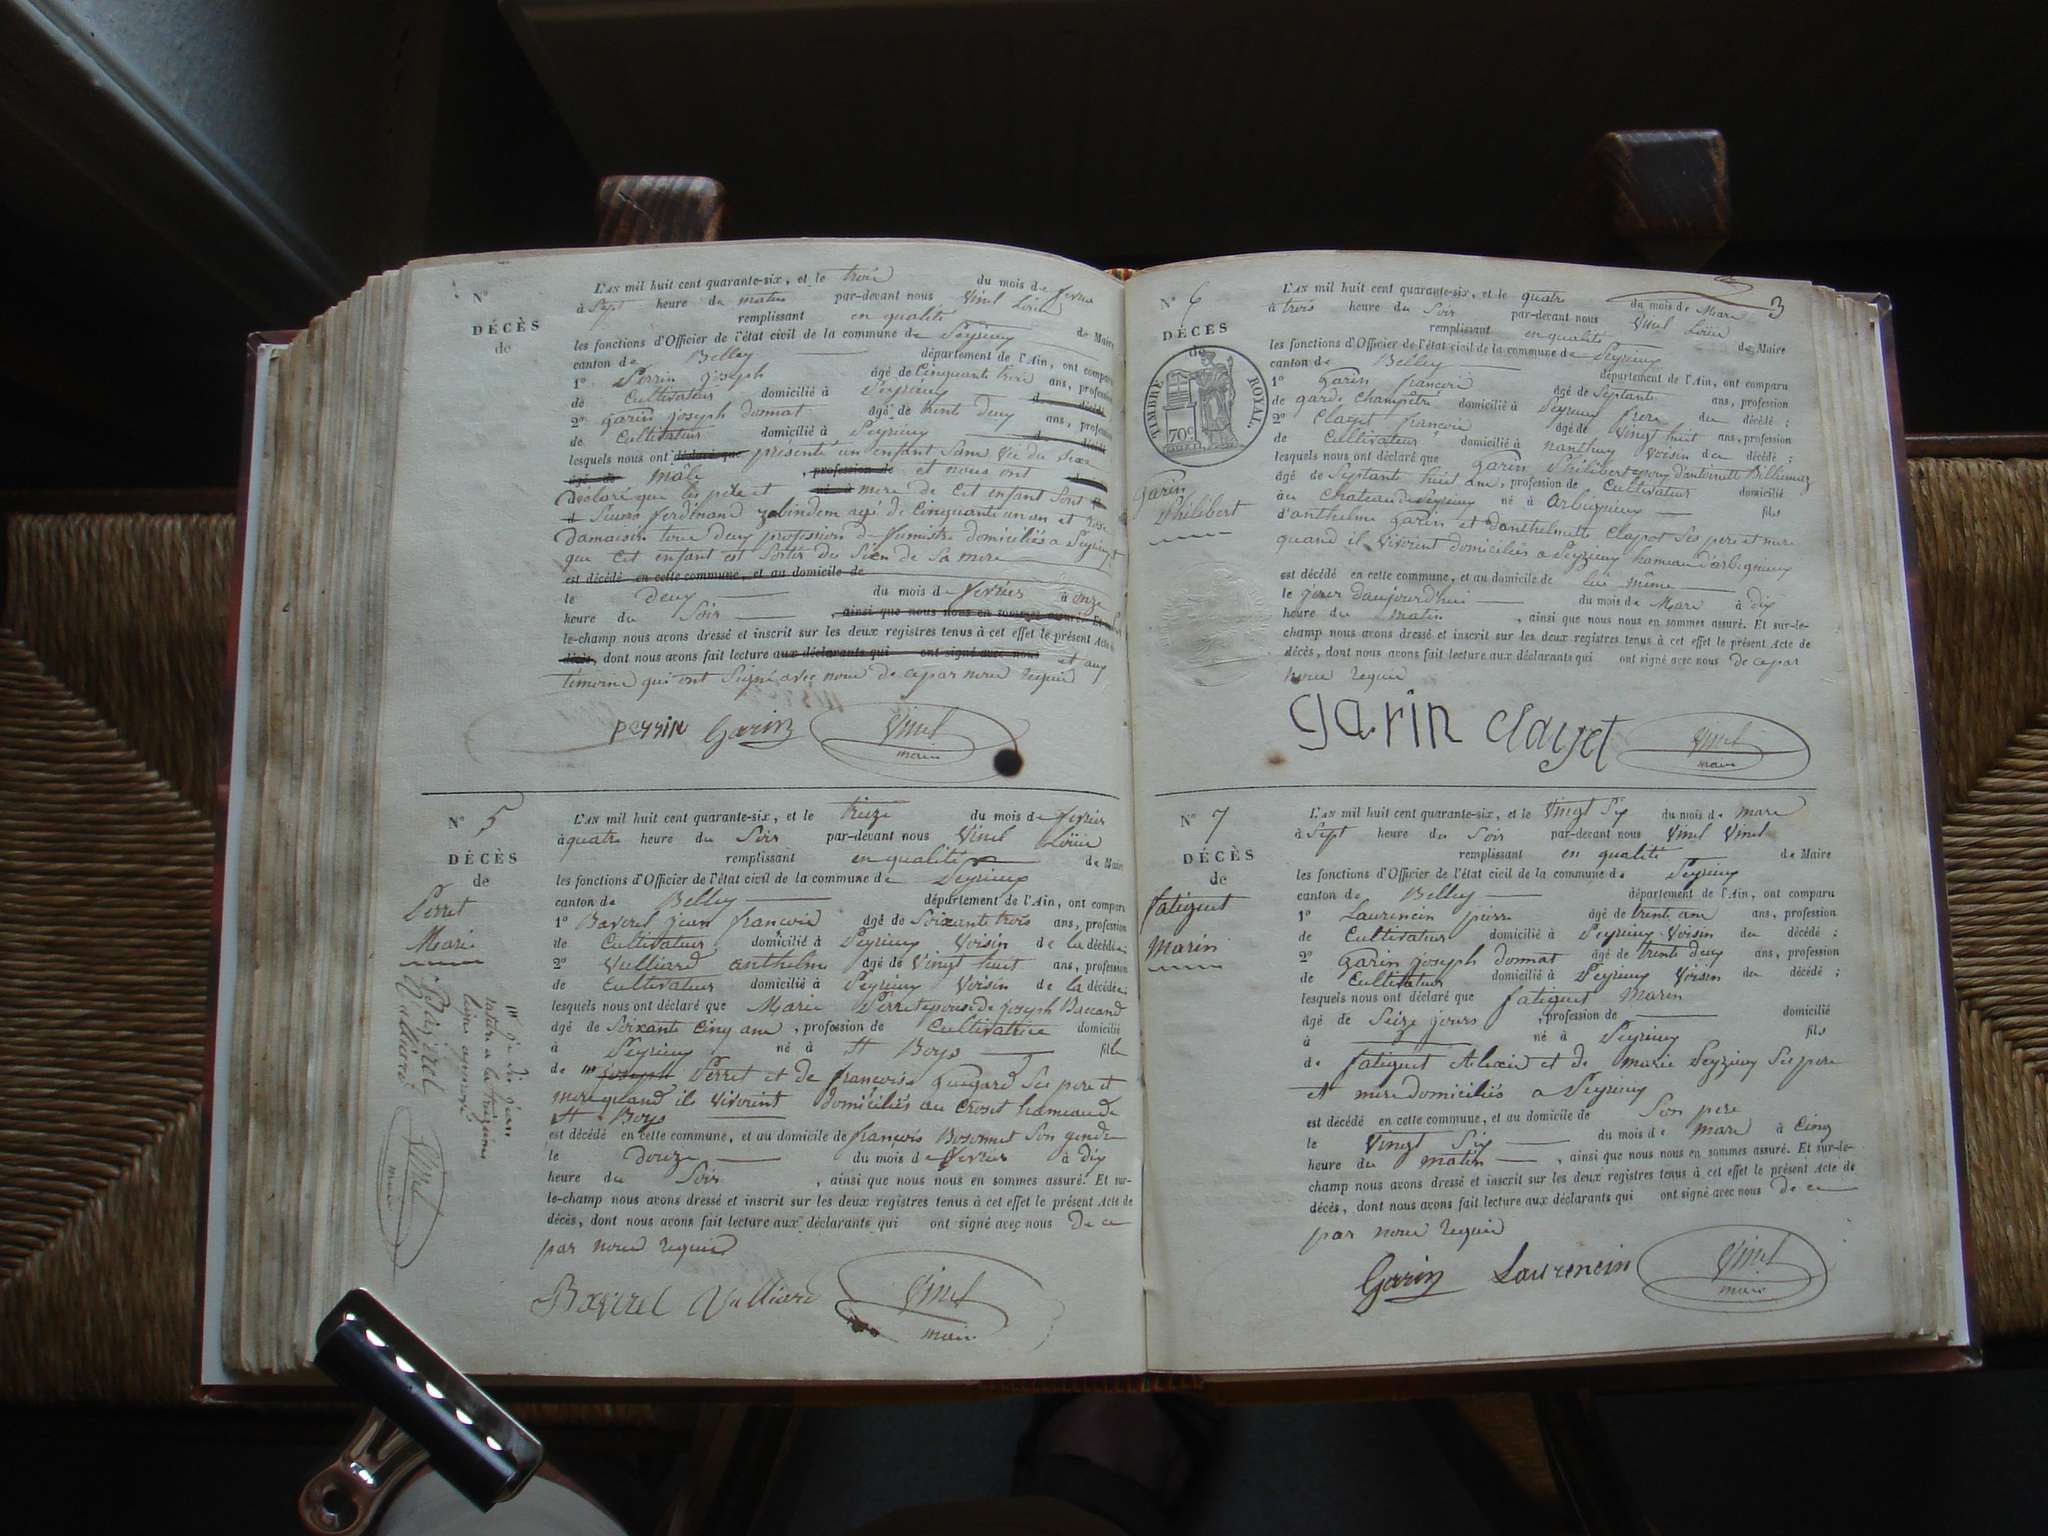 N°
DÉCÈS
de
L'AN mil huit cent quarante-six, et le trois du mois de fevrier
à Sept heure du matin par-devant nous Vinel Loüis
remplissant en qualité de Maire
les fonctions d'Officier de l'état civil de la commune de Peyrieux
canton de Belley département de l'Ain, ont comparu
1° Perrin joseph âgé de Cinquante trois ans, profession
de Cultivateur domicilié à Peyrieux
2° garin joseph donnat âgé de trente deux ans, profession
de Cultivateur domicilié à Peyrieux
lesquels nous ont déclaré que présenté un enfant Sans Vie du Sexe
âgé de mâle , profession de et nous ont
Déclaré que les père et né à mere de Cet enfant Sont
ferdinand agé de Cinquante un an et
tous deux profession de fumiste domiciliés a Peyrieux
que Cet enfant est Sortit du Sien de Sa mere
est décédé en cette commune, et au domicile de
le deux du mois de fevrier à onze
heure du Soir , ainsi que nous nous en sommes assuré. Et sur
le-champ nous avons dressé et inscrit sur les deux registres tenus à cet effet le présent Acte de
décès, dont nous avons fait lecture aux déclarants qui ont signé avec nous et aux
temoins qui ont Signé avec nous de ce par nous requis
perrin Garin Vinel
maire
N° 5
DÉCÈS
de
Perret
Marie
L'AN mil huit cent quarante-six, et le treize du mois de fevrier
à quatre heure du Soir par-devant nous Vinel Loüis
remplissant en qualité de Maire
les fonctions d'Officier de l'état civil de la commune de Peyrieux
canton de Belley département de l'Ain, ont comparu
1° Baverel jean francois âgé de Soixante trois ans, profession
de Cultivateur domicilié à Peyrieux Voisin de la décédée;
2° Vulliard anthelme âgé de Vingt huit ans, profession
de Cultivateur domicilié à Peyrieux Voisin de la décédée;
lesquels nous ont déclaré que Marie Perret epouse de joseph Baccand
âgé de Soixante Cinq ans , profession de Cultivatrice domicilié
à Peyrieux né à St Boys fille
de joseph Perret et de françoise Ses pere et
mere quand ils Vivoient domiciliés au Croset hameau de
St Boys
est décédé en cette commune, et au domicile de françois Bosonnet Son gendre
le Douze du mois de fevrier à dix
heure du Soir , ainsi que nous nous en sommes assuré. Et sur-
le-champ nous avons dressé et inscrit sur les deux registres tenus à cet effet le présent Acte de
décès, dont nous avons fait lecture aux déclarants qui ont signé avec nous de ce
par nous requis
Baverel Vulliard Vinel
maire
je dis jean
ligne approuvé
Baverel
Vulliard
Vinel
maire
3
N° 6
DÉCÈS
de
TIMBRE ROYAL.
70c
garin
Philibert
L'AN mil huit cent quarante-six, et le quatre du mois de Mars
à trois heure du Soir par-devant nous Vinel Loüis
remplissant en qualité de Maire
les fonctions d'Officier de l'état civil de la commune de Peyrieux
canton de Belley département de l'Ain, ont comparu
1° garin francois âgé de Septante ans, profession
de garde champêtre domicilié à Peyrieux frere du décédé;
2° Clayet françois âgé de Vingt huit ans, profession
de Cultivateur domicilié à nanthuy Voisin du décédé;
lesquels nous ont déclaré que garin Philibert epoux d'antoinette Billiemaz
âgé de Septante huit ans, profession de Cultivateur domicilié
au Chateau de Peyrieux né à Arbignieux fils
d'anthelme garin et d'anthelmette Clapot Ses pere et mere
quand ils Vivoient domiciliés a Peyrieux hameau d'arbignieux
est décédé en cette commune, et au domicile de lui même
le jour d'aujourd'hui du mois de Mars à dix
heure du matin , ainsi que nous nous en sommes assuré. Et sur-le-
champ nous avons dressé et inscrit sur les deux registres tenus à cet effet le présent Acte de
décès, dont nous avons fait lecture aux déclarants qui ont signé avec nous de ce par
nous requis
garin clayet Vinel
maire
N° 7
DÉCÈS
de
fatiguet
Marin
L'AN mil huit cent quarante-six, et le Vingt Six du mois de mars
à Sept heure du Soir par-devant nous Vinel Vinel
remplissant en qualité de Maire
les fonctions d'Officier de l'état civil de la commune de Peyrieux
canton de Belley département de l'Ain, ont comparu
1° Laurencin pierre âgé de trente ans ans, profession
de Cultivateur domicilié à Peyrieux Voisin du décédé;
2° garin joseph donnat âgé de trente deux ans, profession
de Cultivateur domicilié à Peyrieux Voisin du décédé;
lesquels nous ont déclaré que fatiguet Marin
âgé de Seize jours , profession de domicilié
à né à Peyrieux fils
de fatiguet Alexis et de marie Peyzieu Ses pere
et mere domiciliés a Peyrieux
est décédé en cette commune, et au domicile de Son pere
le Vingt Six du mois de mars à Cinq
heure du matin , ainsi que nous nous en sommes assuré. Et sur-le-
champ nous avons dressé et inscrit sur les deux registres tenus à cet effet le présent Acte de
décès, dont nous avons fait lecture aux déclarants qui ont signé avec nous de ce
par nous requis
Garin Laurencin Vinel
maire